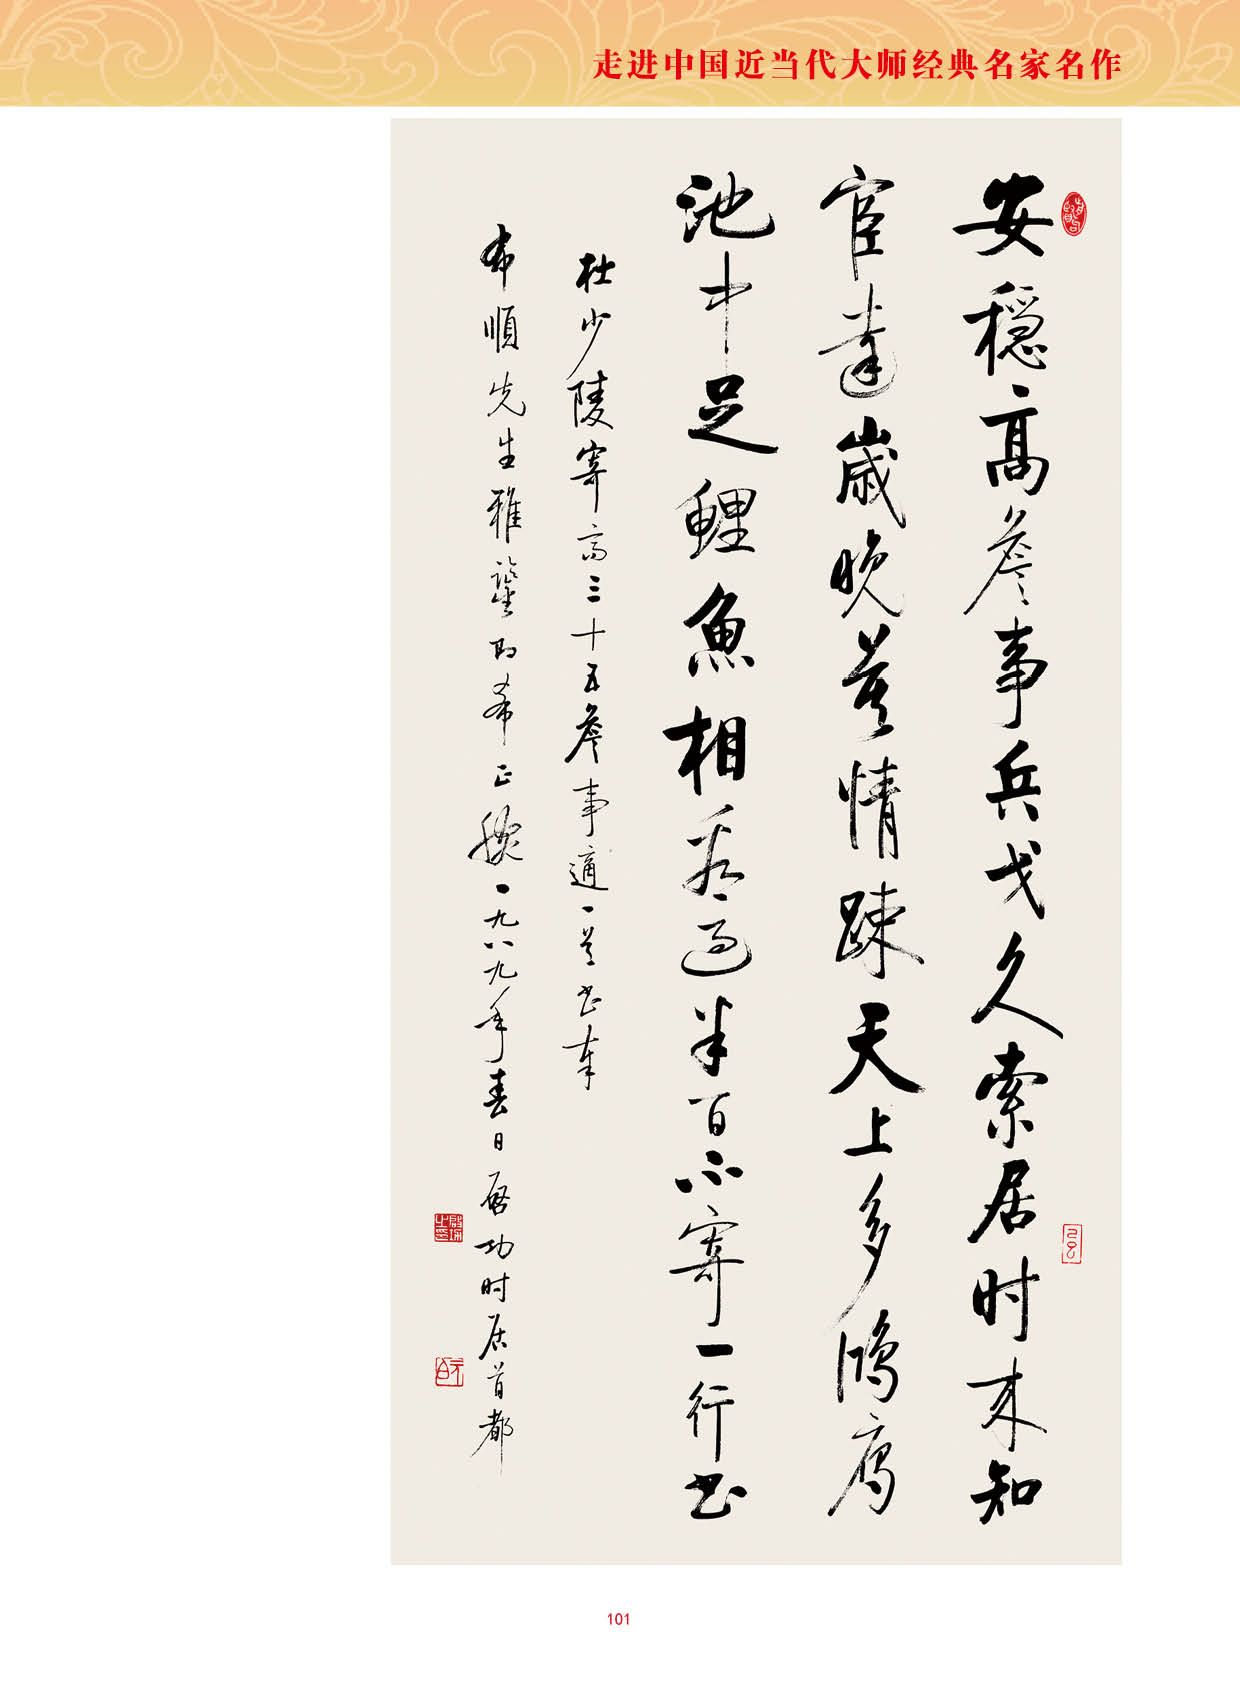 走进中国近当代大师经典名家名作
安穩高詹事兵戈久索居时来知
宦達歲晚莫情踈天上多鴻雁
池中足鯉魚相看過半百不寄一行书
杜少陵寄高三十五詹事適一首书奉
布順先生雅鑒即希正腕一九八九年春日啓功时居首都
101